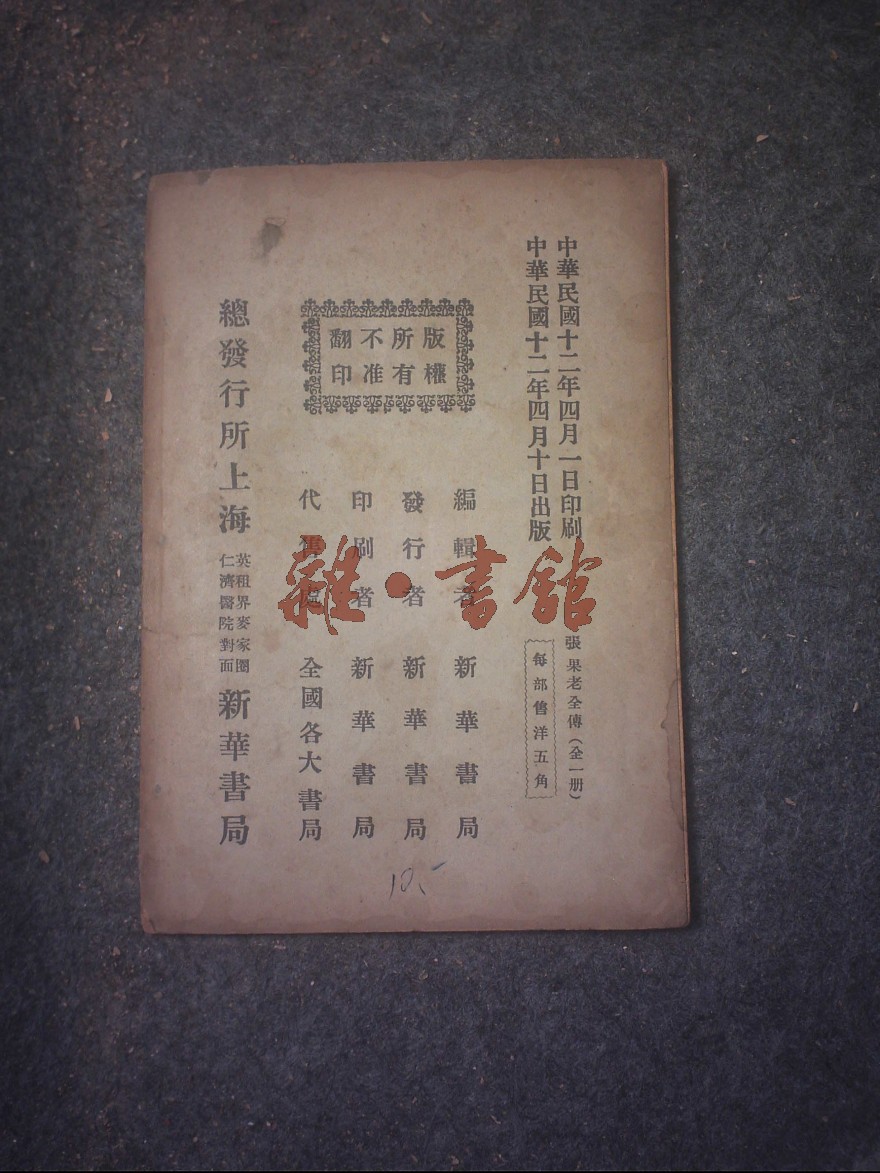 中華民國十二年四月一日印刷
中華民國十二年四月十日出版
張果老全傳（全一册）
每部售洋五角
版權
所有
不准
翻印
編輯者 新華書局
發行者 新華書局
印刷者 新華書局
代售處 全國各大書局
總發行所上海
英租界麥家圈
仁濟醫院對面
新華書局
雜·書館
10.